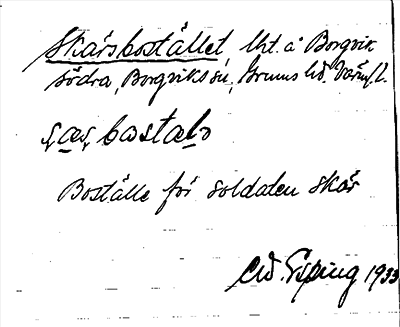 Skärsbostället, lht. å Borgvik
södra, Borgviks sn, Grums hd. Värml. l.
bostal
Boställe för soldaten Skär
1933